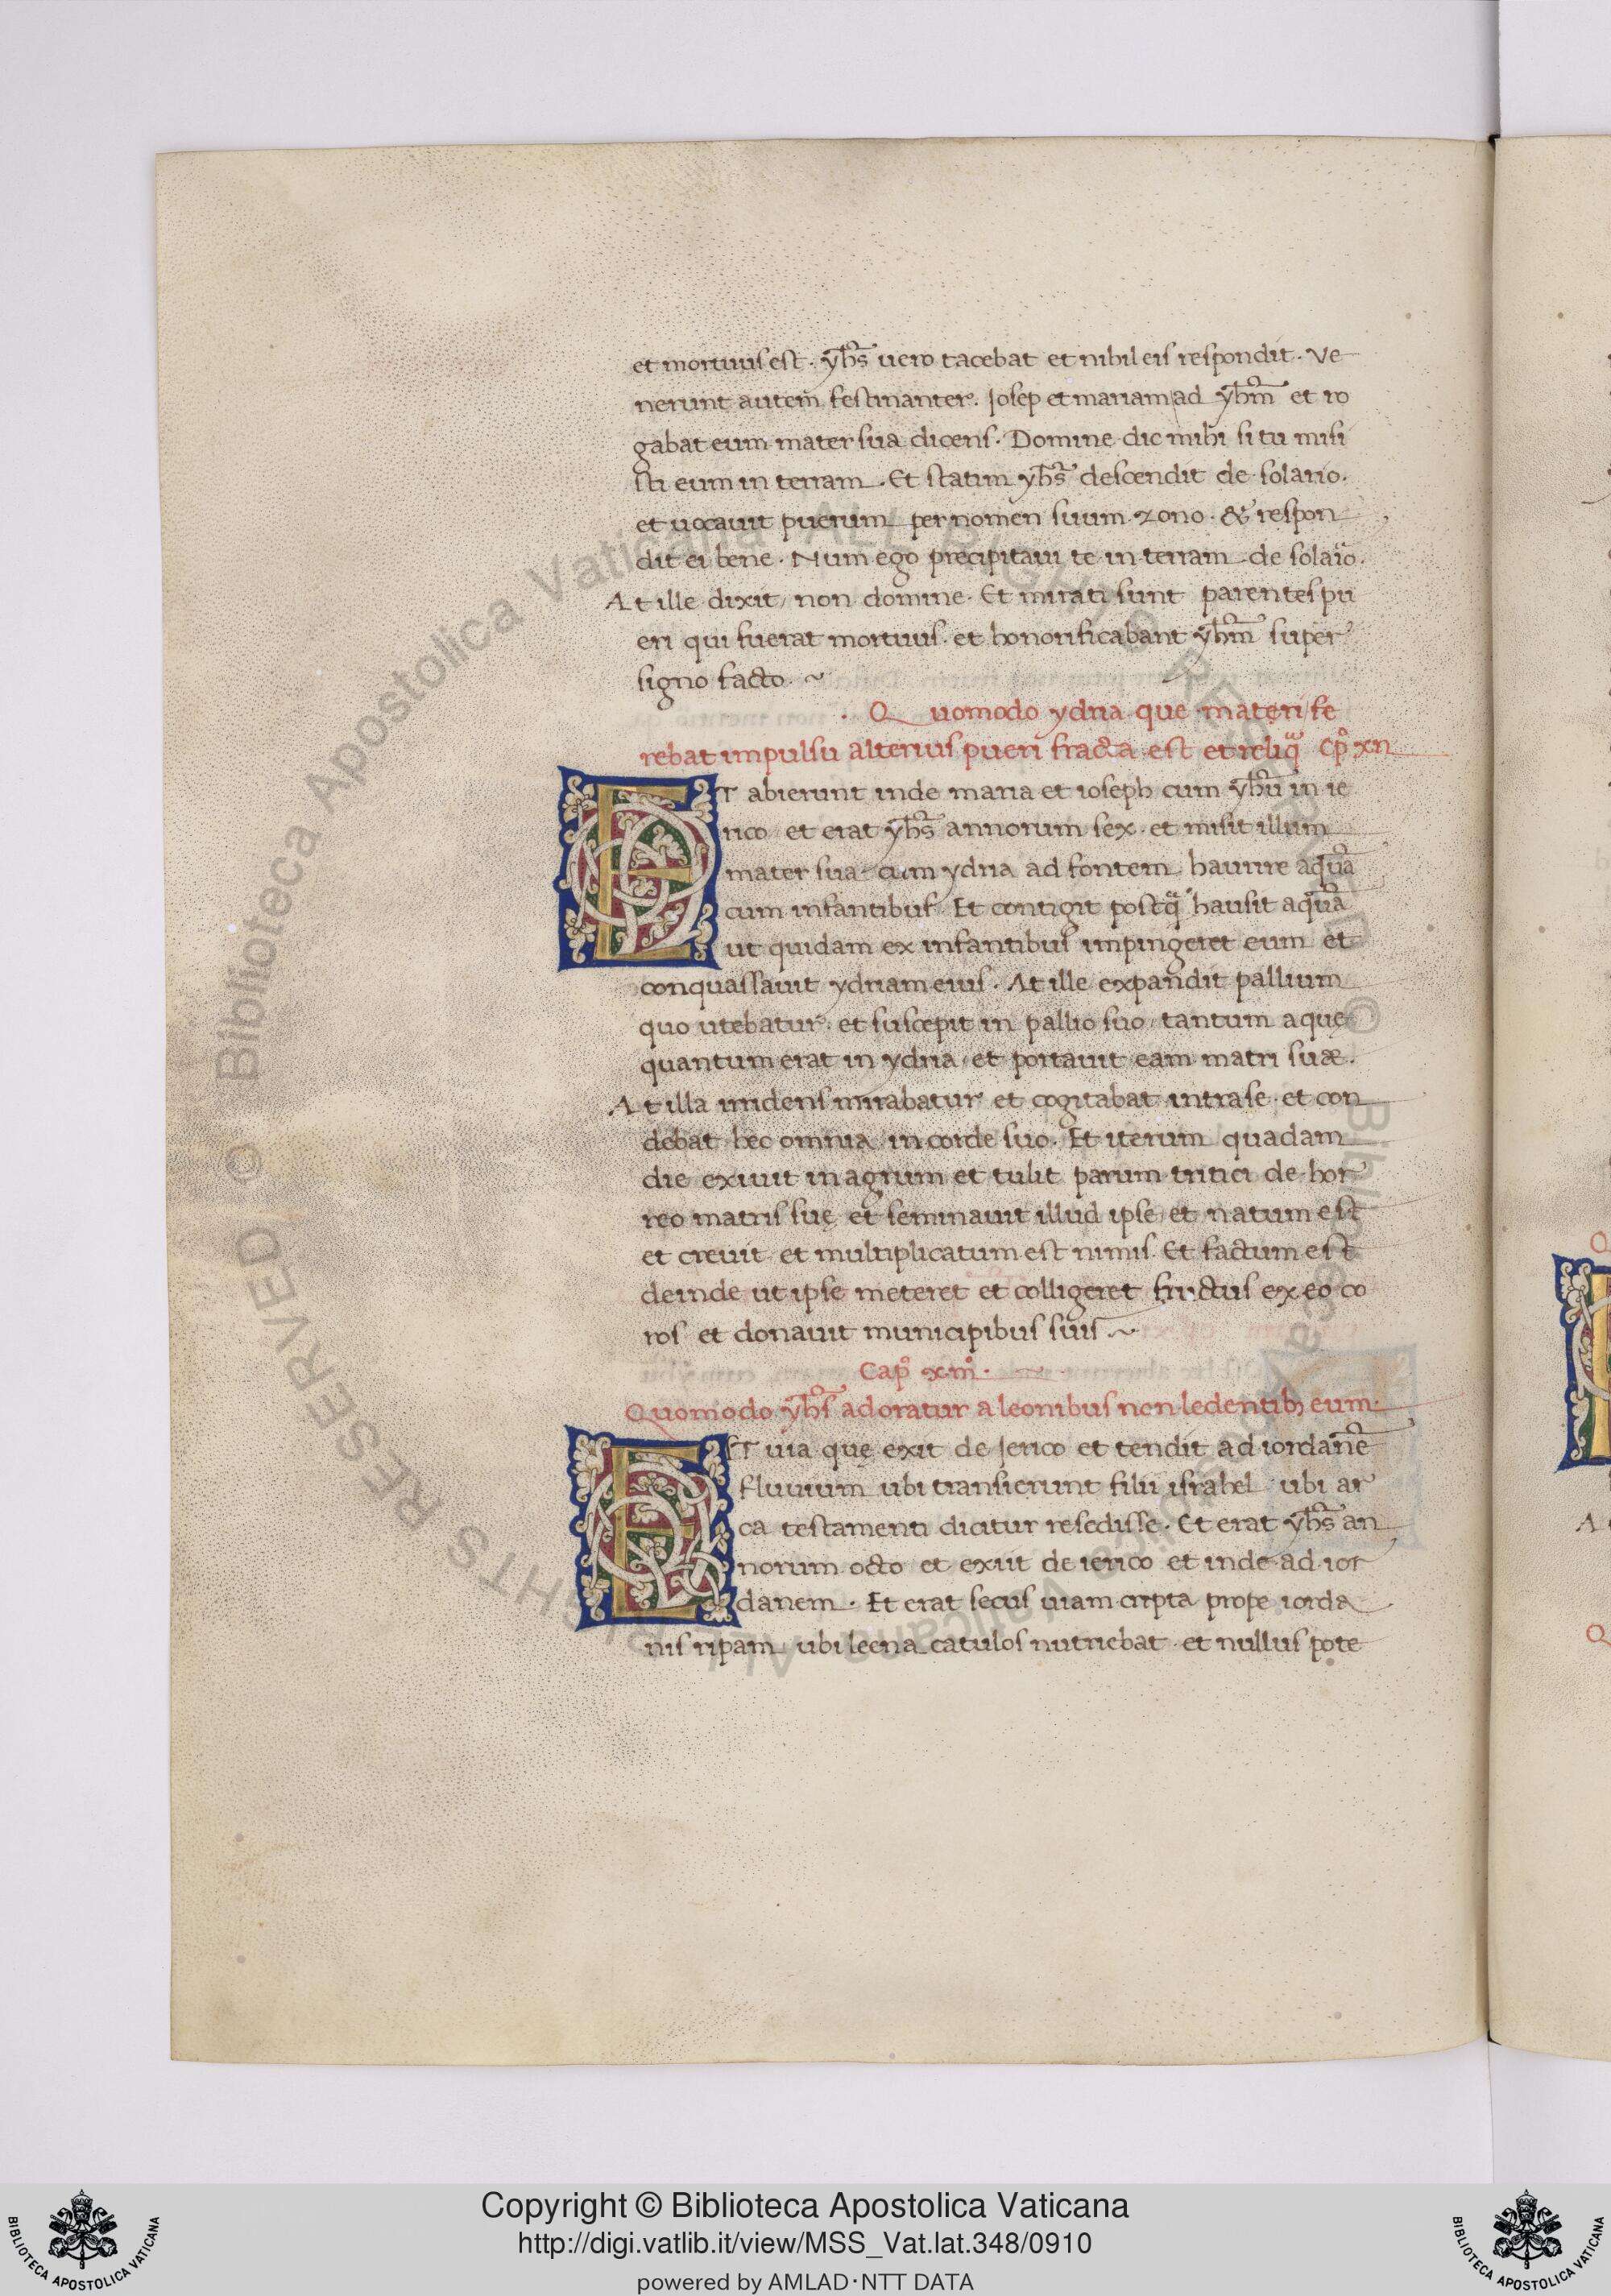 et mortuus est. yħs uero tacebat et nihil eis respondit. Ve
nerunt autem festinanter. Iosep et mariam ad yħm et ro
gabat eum mater sua dicens. Domine dic mihi si tu misi
sti eum in terram. Et statim yħs descendit de solario.
et uocauit puerum per nomen suum zono. & respon
dit ei bene. Num ego precipitaui te in terram de solario.
At ille dixit, non domine. Et mirati sunt parentes pu
eri qui fuerat mortuus. et honorificabant yħm super
signo facto. ~
Quomodo ydria que materi fe
rebat impulsu alterius pueri fracta est et reliq̃ Cp° xii
ET abierunt inde maria et ioseph cum yħu in ie
rico et erat yħs annorum sex. et misit illum
mater sua cum ydria ad fontem haurire aquā
cum infantibus. Et contigit postq̃ hausit aquā
ut quidam ex infantibus impingeret eum et
conquassauit ydriam eius. At ille expandit pallium
quo utebatur. et suscepit in pallio suo tantum aque
quantum erat in ydria et portauit eam matri suæ.
At illa uidens mirabatur et cogitabat intra se. et con
debat hec omnia in corde suo. Et iterum quadam
die exiuit in agrum et tulit parum tritici de hor
reo matris suę et seminauit illud ipse et natum est
et creuit et multiplicatum est nimis. Et factum est
deinde ut ipse meteret et colligeret fructus ex eo co
ros et donauit municipibus suis ~
Cap° xiii°.
Quomodo yħs adoratur a leonibus non ledentib; eum.
EST uia que exit de Jerico et tendit ad iordanē
fluuium ubi transierunt filii israhel ubi ar
ca testamenti dicitur resedisse. Et erat yħs an
norum octo et exiit de ierico et inde ad ior
danem. Et erat secus uiam cripta prope iorda
nis ripam ubi leena catulos nutriebat et nullus pote
© Biblioteca Apostolica Vaticana ALL RIGHTS RESERVED © Biblioteca Apostolica Vaticana ALL RIGHTS RESERVED
Copyright © Biblioteca Apostolica Vaticana
http://digi.vatlib.it/view/MSS_Vat.lat.348/0910
powered by AMLAD·NTT DATA
BIBLIOTECA APOSTOLICA VATICANA
BIBLIOTECA APOSTOLICA VATICANA